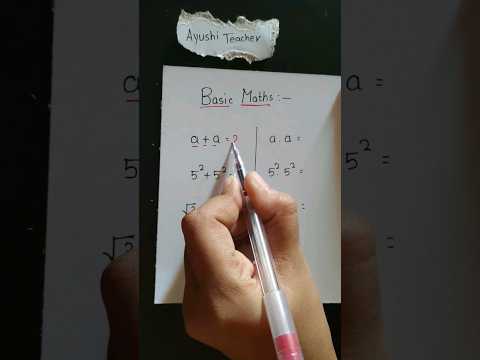 Ayushi Teacher
Basic Maths :-
a + a = 2
a . a =
5² + 5² =
5² . 5² =